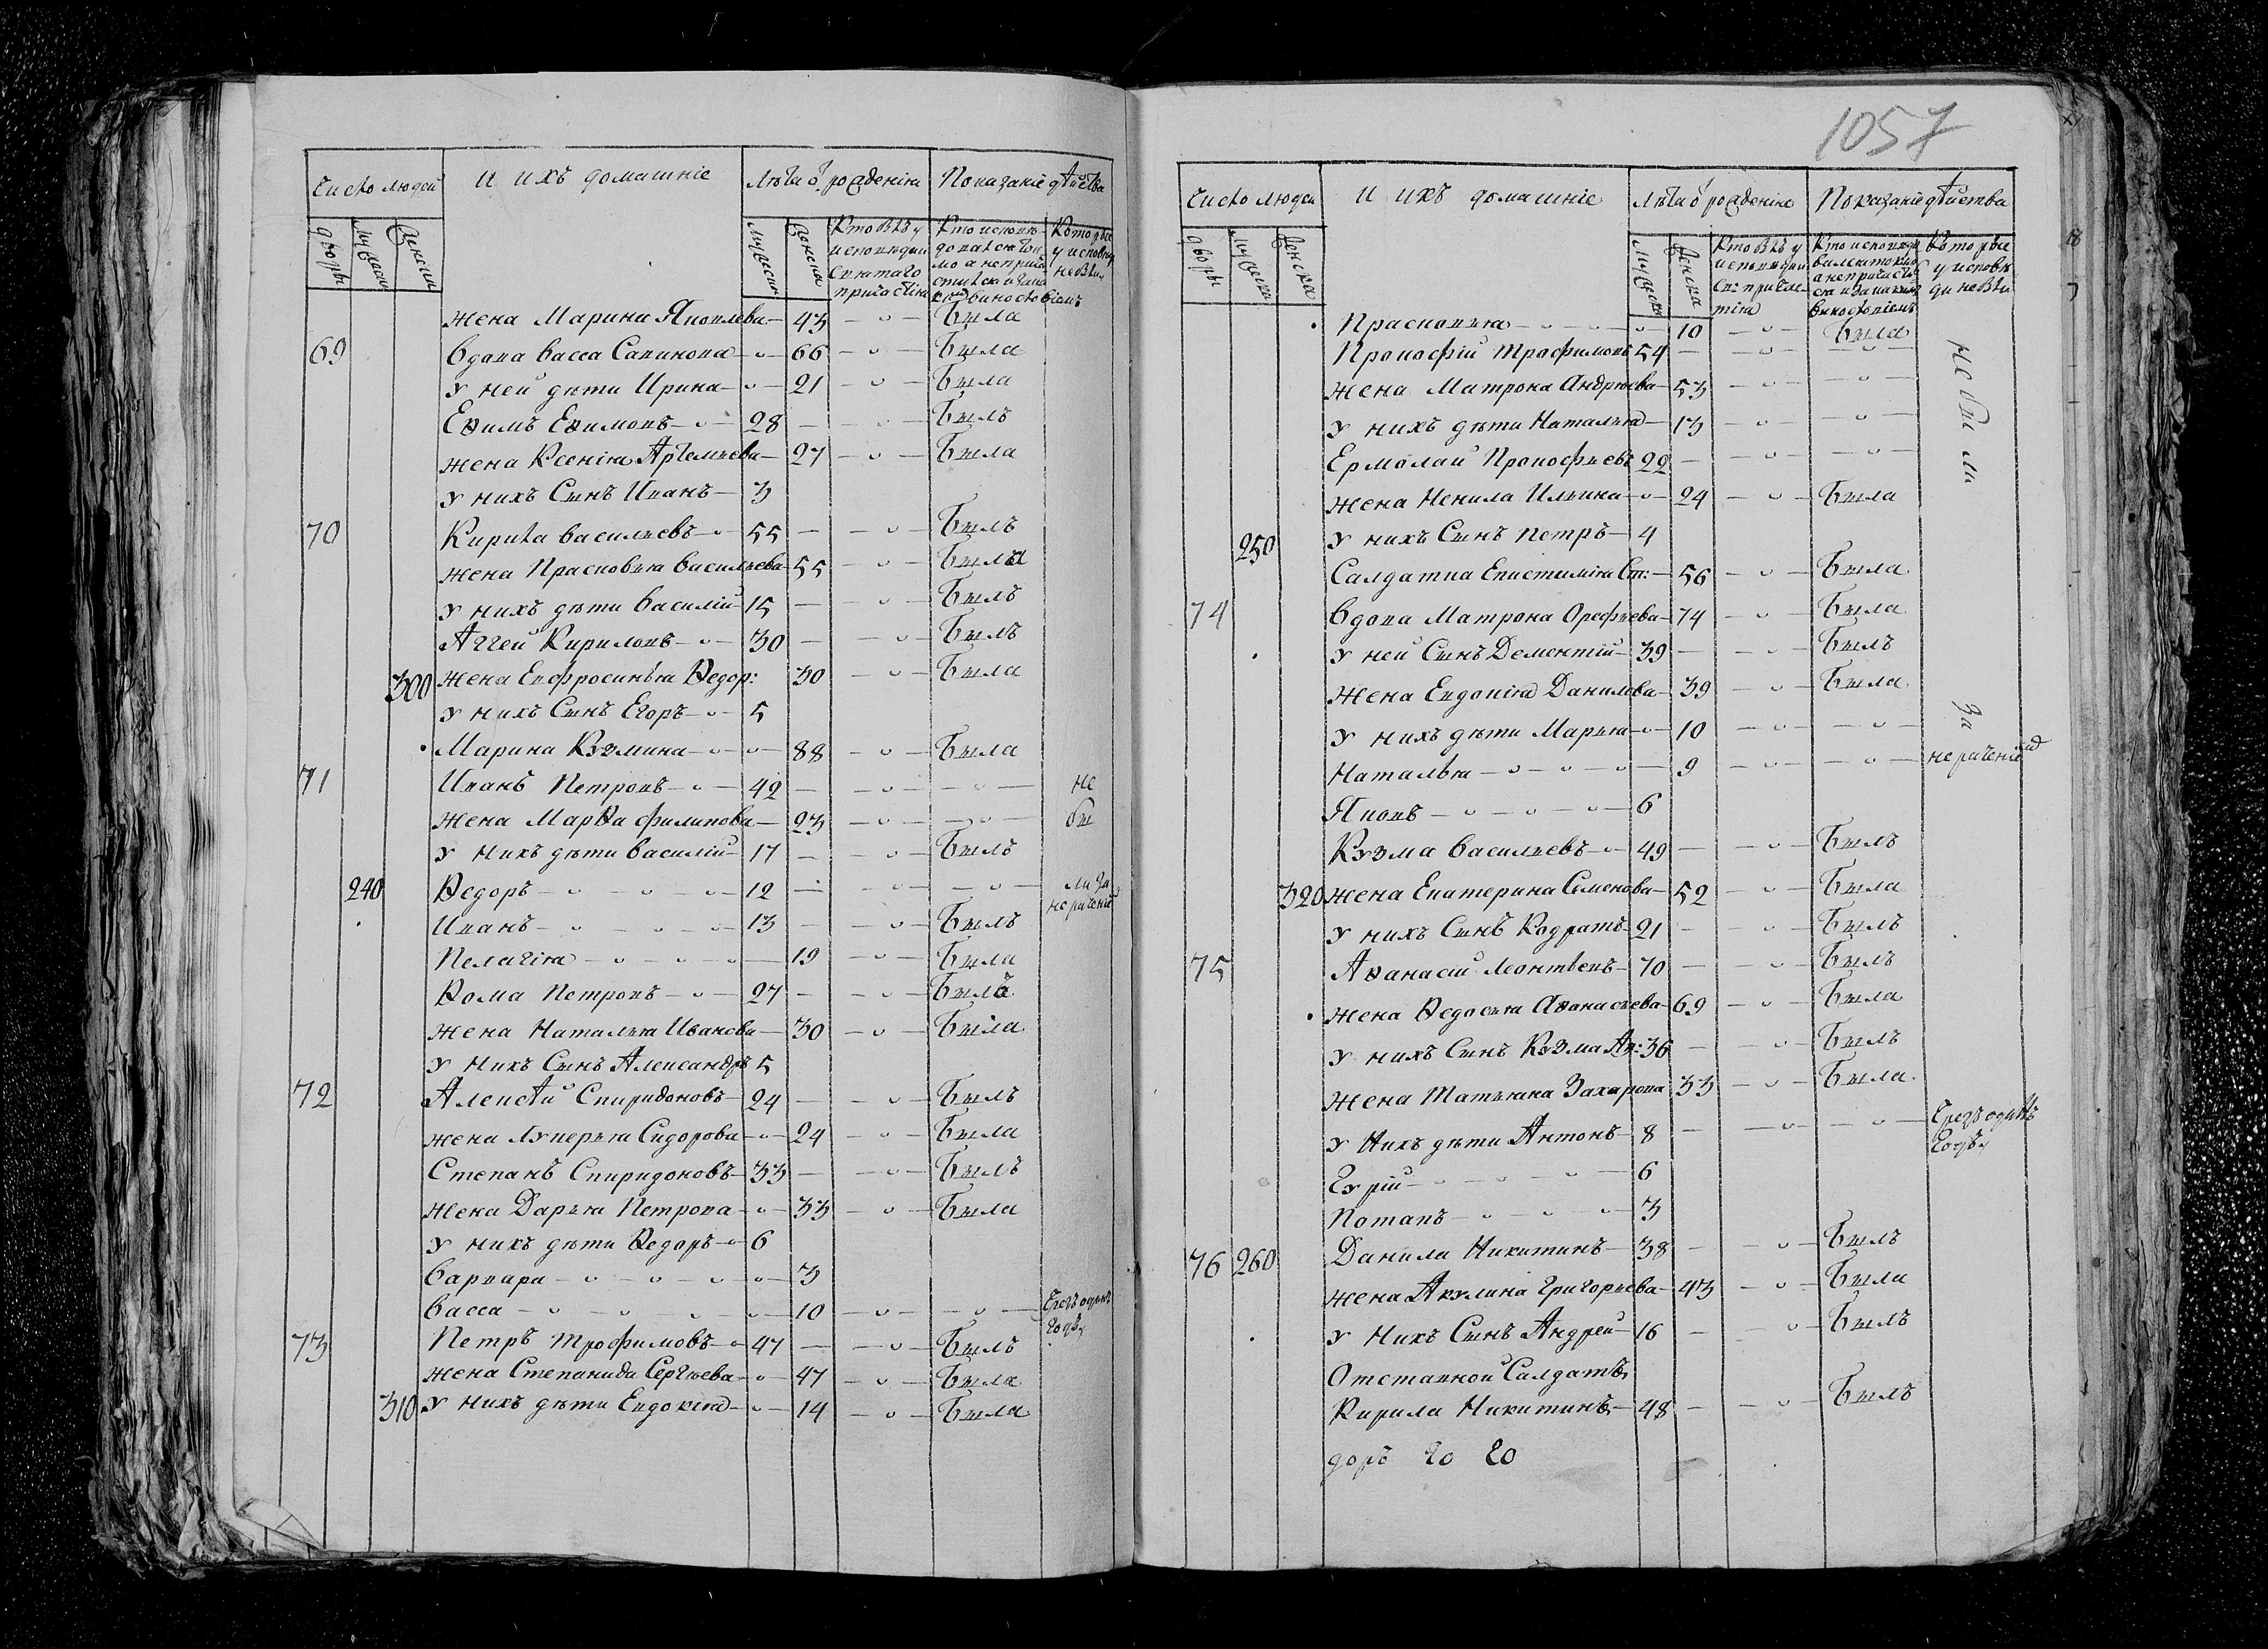 Число людей
И ихъ домашнiе
Лѣта ѿ рожденiя
Показанiе дѣйства
дворы
мужеск
женски
мужески
женска
Кто былъ у
исповѣди и
святаго
причастiя
Кто исповѣ
Которые
у исповѣд
не были
Жена Марина Яковлева 43 была
69 Вдова Васса Савинова 66 была
У ней дѣти Ирина 21 была
Еѳимъ Еѳимовъ 28 былъ
Жена Ксенiя Артемьева 27 была
У нихъ Сынъ Иванъ 3
70 Кирила Васильевъ 55 былъ
Жена Прасковья Васильева 55 была
У нихъ дѣти Василiй 15 былъ
Аггей Кириловъ 30 былъ
300 Жена Евфросинья Ѳедор: 30 была
У нихъ Сынъ Егоръ 5
Марина Кузмина 88 была
71 Иванъ Петровъ 42 не
Жена Марѳа Филипова 23 бы
У нихъ дѣти Василiй 17 былъ
240 Ѳедоръ 12 ли за
нерачен
Иванъ 13 былъ
Пелагiя 19 была
Ѳома Петровъ 27 былъ
Жена Наталья Иванова 30 была
У нихъ Сынъ Александръ 5
72 Алексѣй Спиридоновъ 24 былъ
Жена Лукерья Сидорова 24 была
Степанъ Спиридоновъ 33 былъ
Жена Дарья Петрова 33 была
У нихъ дѣти Ѳедоръ 6
Варвара 3
Васса 10 Чрезъ одинъ
годъ
73 Петръ Трофимовъ 47 былъ
Жена Степанида Сергѣева 47 была
310 У нихъ дѣти Евдокiя 14 была
1057
Число людей
И ихъ домашнiе
Лѣта ѿ рожденiя
Показанiе дѣйства
дворы
мужеска
женска
мужеска
женска
Кто былъ у
исповѣди и
Св: причас
тiя
Кто исповѣда
Которые
у исповѣ
ди не были
Прасковья 10 была
Прокофiй Трофимовъ 54
Жена Матрона Андрюева 53
У нихъ дѣти Наталья 13
Ермолай Прокофьевъ 22
не были
Жена Ненила Ильина 24 была
250 У нихъ Сынъ Петръ 4
Салдатка Епистимiя Ст: 56 была
74 Вдова Матрона Орефьева 74 была
У ней Сынъ Дементiй 39 былъ
Жена Евдокiя Данилева 39 была
У нихъ дѣти Марья 10 за
Наталья 9 нераченi
Яковъ 6
Кузма Васильевъ 49 былъ
320 Жена Екатерина Семенова 52 была
У нихъ Сынъ Кодратъ 21 былъ
75 Аѳанасiй Леонтѣевъ 70 былъ
Жена Ѳедосья Аѳанасьева 69 была
У нихъ Сынъ Кузма Аѳ: 36 былъ
Жена Татьяна Захарова 33 была
У нихъ дѣти Антонъ 8 Чрезъ одинъ
годъ
Гурiй 6
Потапъ 3
76 260 Данила Никитинъ 38 былъ
Жена Акулина Григорьева 43 была
У нихъ Сынъ Андрей 16 былъ
Отставной Салдатъ
Кирила Никитинъ 48 былъ